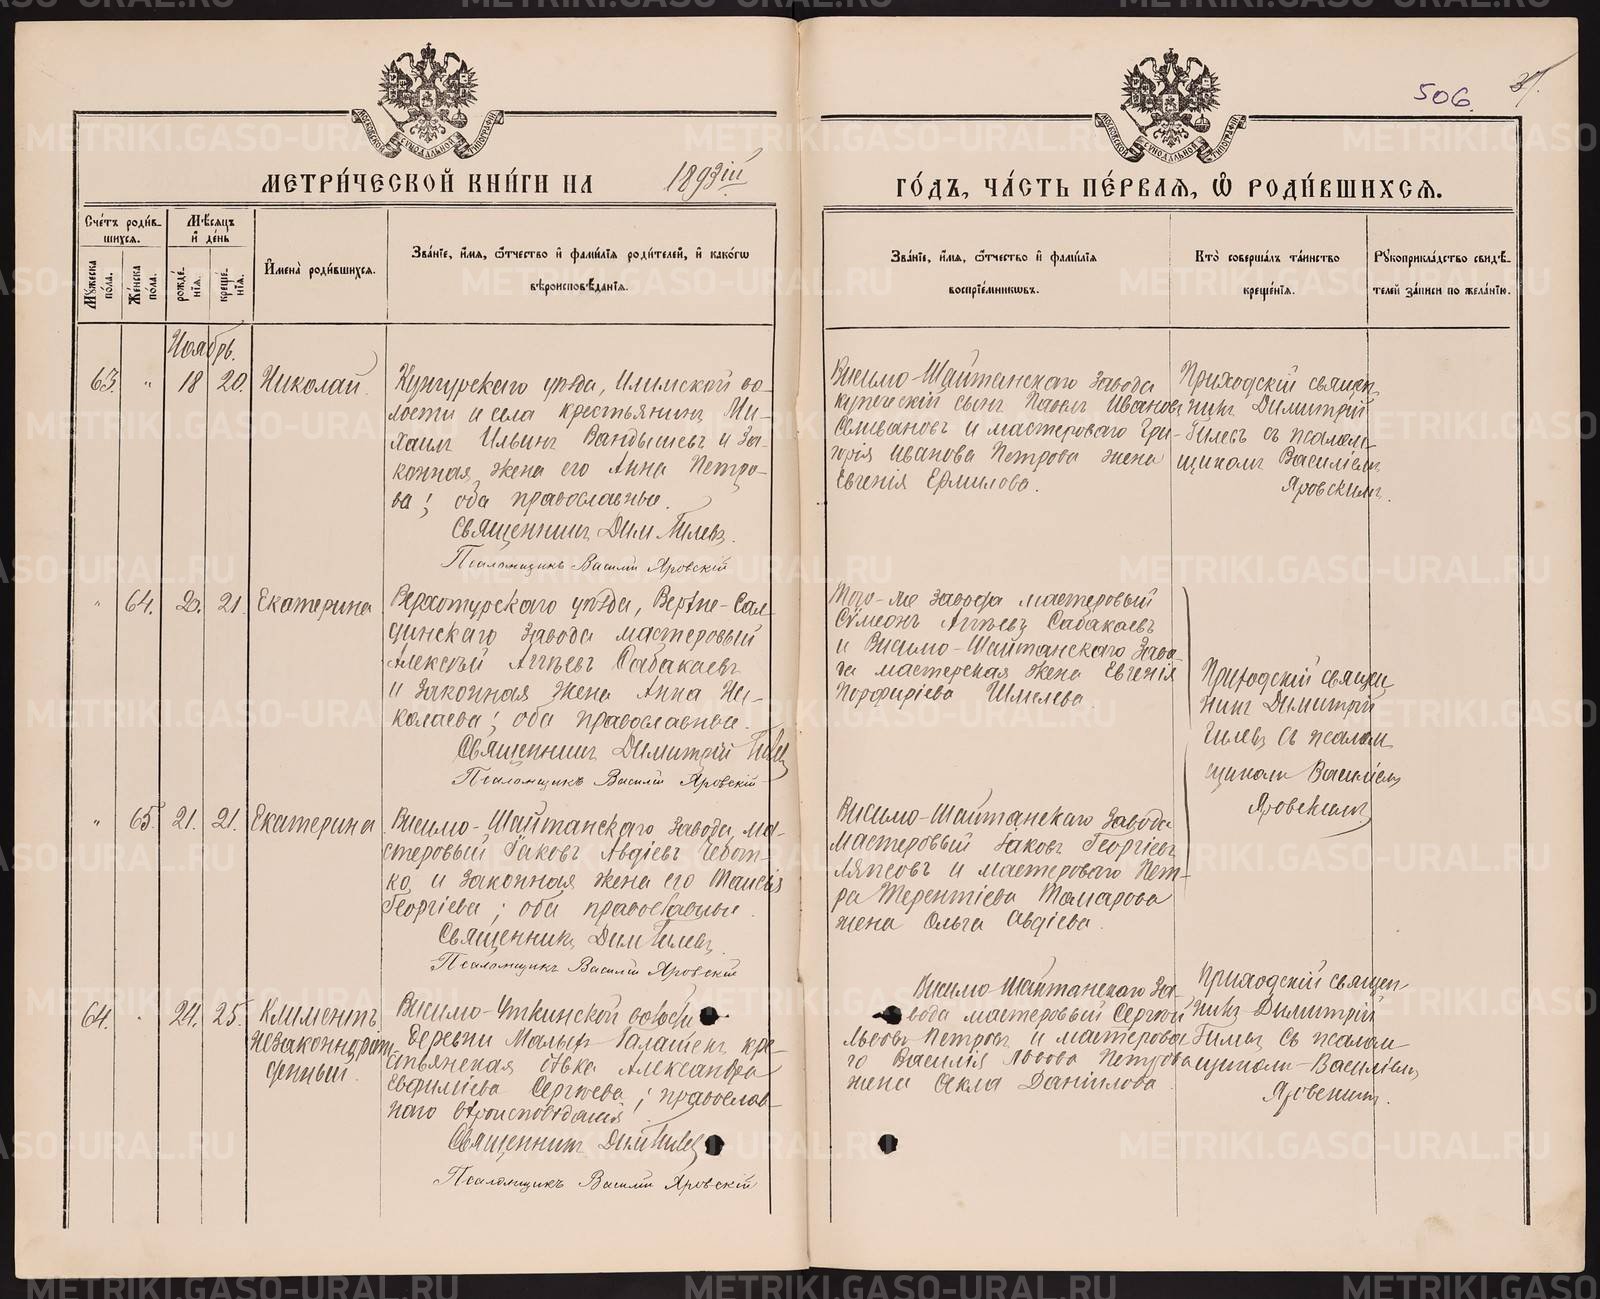 506.
МОСКОВСКОЙ СѴНОДАЛЬНОЙ ТИПОГРАФІИ
МОСКОВСКОЙ СѴНОДАЛЬНОЙ ТИПОГРАФІИ
МЕТРИ́ЧЕСКОЙ КНИ́ГИ НА 1893ій
ГО́ДЪ, ЧА́СТЬ ПЕ́РВАѦ, Ѽ РОДИ́ВШИХСѦ.
Сче́тъ роди́в-
шихсѧ.
Мꙋжеска по́ла.
Же́нска по́ла.
Мѣ́сѧцъ
и҆ де́нь
рожде́-
нїѧ.
креще́-
нїѧ.
И҆мена̀ роди́вшихсѧ.
Зва́нїе, и҆́мѧ, ѻ҆́тчество и҆ фами́лїѧ роди́телей, и҆ како́гѡ
вѣроисповѣ́данїѧ.
Зва́нїе, и҆́мѧ, ѻ҆́тчество и҆ фами́лїѧ
воспрїе́мникѡвъ.
Кто̀ соверша́лъ та́инство
креще́нїѧ.
Рꙋкоприкла́дство свидѣ́-
телей за́писи по жела́нїю.
Ноябрь.
63. " 18 20. Николай.
Кунгурскаго уѣзда, Илимской во-
лости и села крестьянинъ Ми-
хаилъ Ильинъ Вандышевъ и за-
конная жена его Анна Петро-
ва; оба православные.
Священникъ Дим Гилевъ.
Псаломщикъ Василій Яровскій
Висимо-Шайтанскаго завода
купеческій сынъ Павелъ Ивановъ
Селивановъ и мастероваго Гри-
горія Иванова Петрова жена
Евгенія Ермилова.
Приходскій священ-
никъ Димитрій
Гилевъ съ псалом-
щикомъ Василіемъ
Яровскимъ.
" 64. 20. 21. Екатерина
Верхотурскаго уѣзда, Верхне-Сал-
динскаго завода мастеровый
Алексѣй Аггѣевъ Сабакаевъ
и законная жена Анна Ни-
колаева; оба православные.
Священникъ Димитрій Гилевъ
Псаломщикъ Василій Яровскій
Того-же завода мастеровый
Сѵмеонъ Аггѣевъ Сабакаевъ
и Висимо-Шайтанскаго заво-
да мастерская жена Евгенія
Порфиріева Шмелева
Приходскій священ-
никъ Димитрій
Гилевъ съ псалом-
щикомъ Василіемъ
Яровскимъ
" 65. 21. 21. Екатерина
Висимо-Шайтанскаго завода ма-
стеровый Іаковъ Авдіевъ Чебот-
ко и законная жена его Таисія
Георгіева; оба православные.
Священникъ Дим Гилевъ
Псаломщикъ Василій Яровскій
Висимо-Шайтанскаго завода
мастеровый Іаковъ Георгіевъ
Ляпсовъ и мастероваго Пет-
ра Терентіева Томарова
жена Ольга Авдіева.
64. " 24. 25. Климентъ
незаконнорож-
денный.
Висимо-Уткинской волости
деревни Малыхъ Галашекъ кре-
стьянская дѣвка Александра
Евфиміева Сергѣева; православ-
наго вѣроисповѣданія
Священникъ Дим Гилевъ
Псаломщикъ Василій Яровскій
Висимо-Шайтанскаго за-
вода мастеровый Сергѣй
Львовъ Петровъ и мастерова-
го Василія Львова Петрова
жена Ѳекла Даніилова
Приходскій священ-
никъ Димитрій
Гилевъ съ псалом-
щикомъ Василіемъ
Яровскимъ.